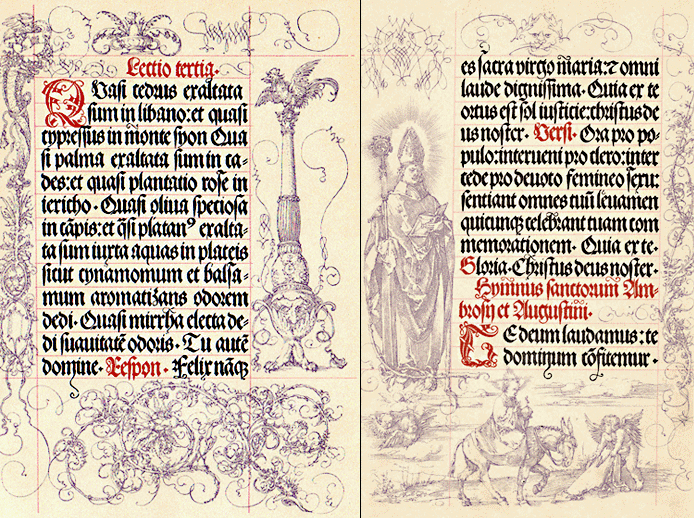 Lectio tertia.
Quasi cedrus exaltata
sum in libano: et quasi
cypressus in monte syon Qua
si palma exaltata sum in ca-
des: et quasi plantatio rose in
iericho. Quasi oliva speciosa
in cāpis: et q̄si platanꝰ exalta-
ta sum iuxta aquas in plateis
sicut cynamomum et balsa-
mum aromatizans odorem
dedi. Quasi mirrha electa de-
di suavitatē odoris. Tu autē
domine. Respon. Felix nāq
es sacra virgo maria: ⁊ omni
laude dignissima. Quia ex te
ortus est sol iusticie: christus de
us noster. Versi. Ora pro po-
pulo: interveni pro clero: inter
cede pro devoto femineo sexu:
sentiant omnes tuū levamen
quicunqꝫ celebrant tuam com
memorationem. Quia ex te.
Gloria. Christus deus noster.
Hymnus sanctorum Am-
brosij et Augustini.
Te deum laudamus: te
dominum cōfitemur.